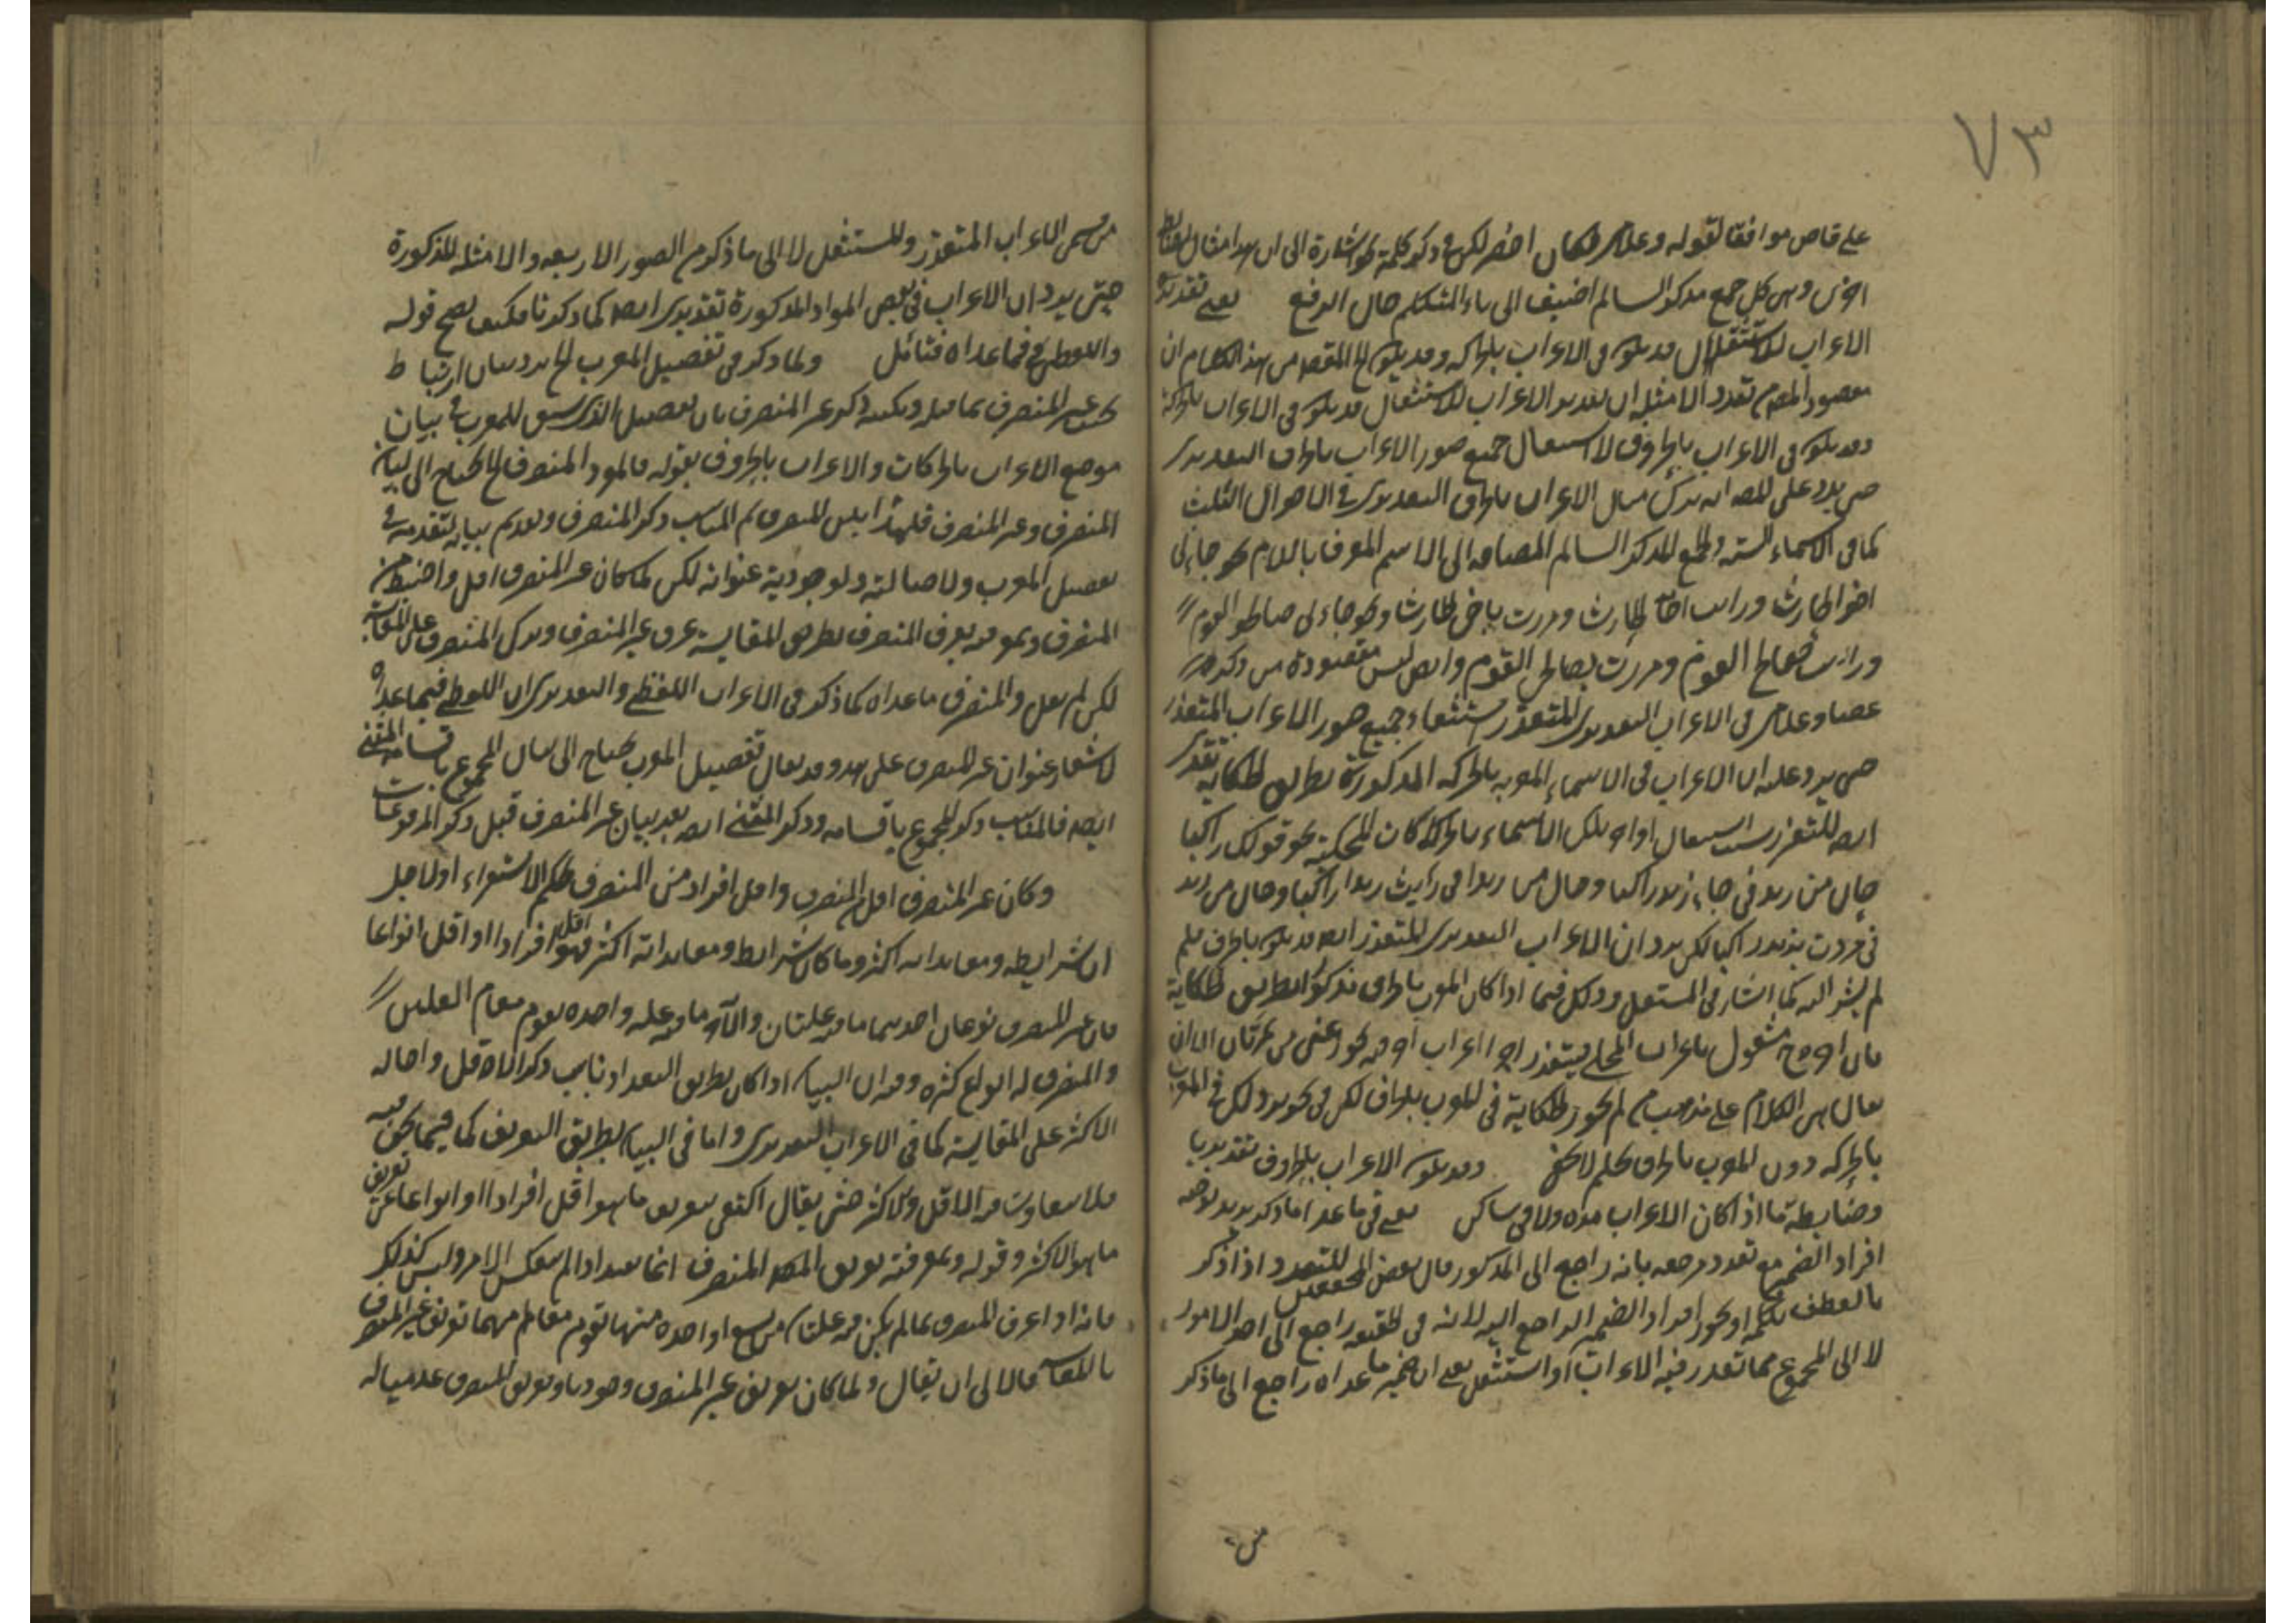 ٧٣
على قاض موافقا لقوله وغلامي لكان اخصر لكن في ذكر كلمة نحو اشارة الى ان لهذا امثال
اخرى وهي كل جمع مذكر السالم اضيف الى ياء المتكلم حال الرفع يعني تقديره
الاعراب للاستثقال قد يكون في الاعراب بالحركة وقد يكون الخ المقصد من هذا الكلام ان
مقصود المص من تعدد الامثلة ان تقدير الاعراب للاستثقال قد يكون في الاعراب بالحركة
وقد يكون في الاعراب بالحروف لا استيعاب جميع صور الاعراب بالحروف التقديري
حتى يرد على المص انه ترك مثال الاعراب بالحروف التقديري في الاحوال الثلث
كما في الاسماء الستة والجمع المذكر السالم المضافة الى الاسم المعرف باللام نحو جاءني
اخو الحارث ورايت اخا الحارث ومررت باخي الحارث ونحو جاءني صالحو القوم
ورايت صالحي القوم ومررت بصالحي القوم وايض ليس مقصوده من ذكر
عصا وغلامي في الاعراب التقديري للمتعذر استيعاب جميع صور الاعراب المتعذر
حتى يرد عليه ان الاعراب في الاسماء المعربة بالحركة المذكورة بطريق الحكاية تقديري
ايض للتعذر بسبب اشتغال اواخر تلك الاسماء بالحركات المحكية نحو قولك راكبا
حال من زيد في جاء زيد راكبا وحال من زيدا في رايت زيدا راكبا وحال من زيد
في مررت بزيد راكبا لكن يرد ان الاعراب التقديري للمتعذر ايض قد يكون بالحرف فلم
لم يشر اليه كما اشار في المستثقل وذلك فيما اذا كان المعرب بالحروف مذكورا بطريق الحكاية
فان اخره ح مشغول باعراب المحلي فيتعذر اجراء اعراب اخر فيه نحو دعني من تمرتان الا ان
يقال هذا الكلام على مذهب من لم يجوز الحكاية في المعرب بالحروف لكن في تجويز ذلك في المعرب
بالحركة دون المعرب بالحروف تحكم لا يخفى وقد يكون الاعراب بالحروف تقديريا
وضابطته ما اذا كان الاعراب مدة ولاقى ساكن يعني في ما عدا ما ذكر يريد توجيه
افراد الضمير مع تعدد مرجعه بانه راجع الى المذكور قال بعض المحققين المتعدد اذا ذكر
بالعطف بكلمة او يجوز افراد الضمير الراجع اليه لانه في الحقيقة راجع الى احد الامور
لا الى المجموع مما تعذر فيه الاعراب او استثقل يعني ان ضمير ما عداه راجع الى ما ذكر
من
من قسمي الاعراب المتعذر والمستثقل لا الى ما ذكر من الصور الاربعة والامثلة المذكورة
حتى يرد ان الاعراب في بعض المواد المذكورة تقديري ايض كما ذكرنا فكيف يصح قوله
واللفظي في ما عداه فتأمل ولما ذكر في تفصيل المعرب الخ يريد بيان ارتباط
بحث غير المنصرف بما قبله ونكتة ذكر غير المنصرف بان تفصيل الذي سبق للمعرب في بيان
موضع الاعراب بالحركات والاعراب بالحروف بقوله فالمفرد المنصرف الخ يحتاج الى بيان
المنصرف وغير المنصرف فلهذا بين المنصرف ثم المناسب ذكر المنصرف وتقديم بيانه لتقدمه في
تفصيل المعرب ولاصالته ولوجودية عنوانه لكن لما كان غير المنصرف اقل واضبط من
المنصرف وبمعرفته يعرف المنصرف بطريق المقايسة عرف غير المنصرف وترك المنصرف على المقايسة
لكن لم يقل والمنصرف ما عداه كما ذكر في الاعراب اللفظي والتقديري ان اللفظي فيما عداه
لاشعار عنوان غير المنصرف على هذا وقد يقال تفصيل المعرب يحتاج الى بيان المجموع باقسامه والمثنى
ايض فالمناسب ذكر المجموع باقسامه وذكر المثنى ايض بعد بيان غير المنصرف قبل ذكر المرفوعات
وكان غير المنصرف اقل من المنصرف واقل افراد من المنصرف بحكم الاستقراء اولاجل
ان شرايطه ومعانداته اكثر وما كان شرايط ومعانداته اكثر فهو اقل افرادا او اقل انواعا
فان غير المنصرف نوعان احدهما ما فيه علتان والآخر ما فيه علة واحدة تقوم مقام العلتين
والمنصرف له انواع كثيرة وفيه ان البيان اذا كان بطريق التعداد يناسب ذكر الاقل واحالة
الاكثر على المقايسة كما في الاعراب التقديري واما في البيان بطريق التعريف كما فيما نحن فيه
فلا يتفاوت فيه الاقل والاكثر حتى يقال اكتفى بتعريف ما هو اقل افرادا او انواعا عن تعريف
ما هو الاكثر وقوله وبمعرفته تعريف المص المنصرف انما يفيد اذا لم ينعكس الامر وليس كذلك
فانه اذا عرف المنصرف بما لم يكن فيه علتان من تسع او واحدة منها تقوم مقامهما تعريف غير المنصرف
بالمقايسة فالاولى ان يقال ولما كان تعريف غير المنصرف وجوديا وتعريف المنصرف عدميا له